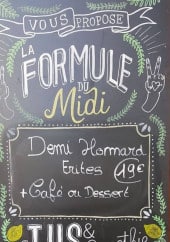 VOUS PROPOSE
LA
FORMULE
DU
Midi
Demi Hommard
Frites 19€
+ Café ou Dessert
JUS &